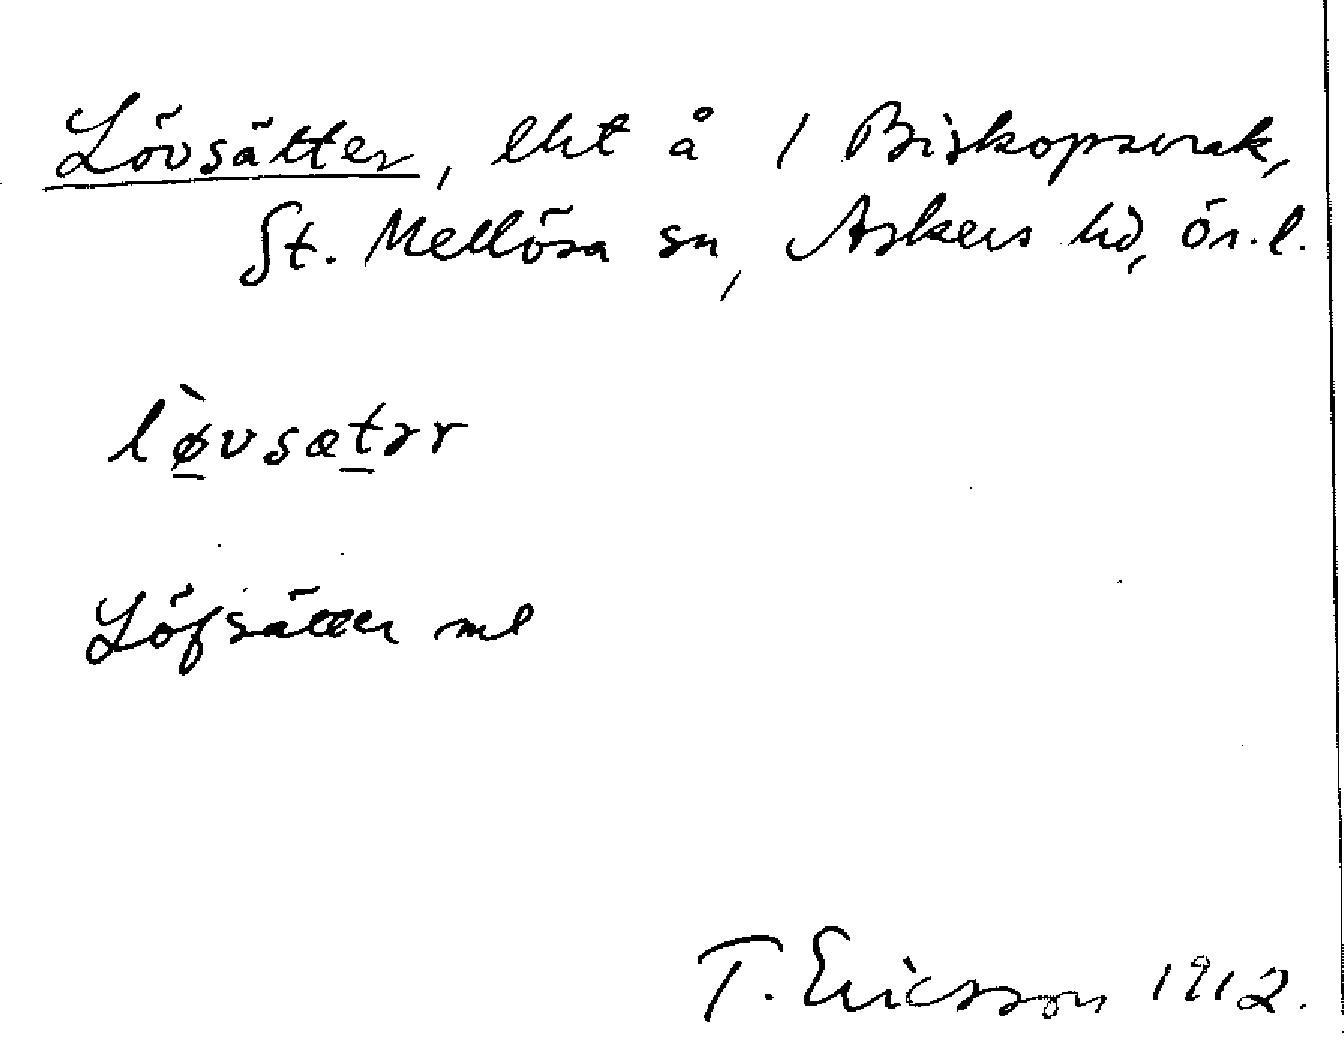 Lövsätter, lht å 1 Biskopsvrak,
St. Mellösa sn, Askers hd, ör. l.
lø̀vsætər
Löfsätter ml
T. Ericsson 1912.